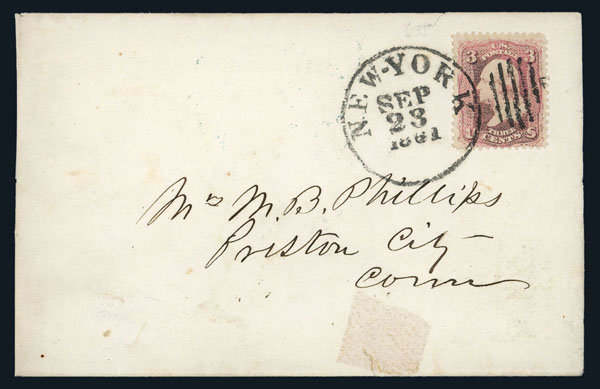 NEW-YORK
SEP
23
1861
U.S.
POSTAGE
3 3
THREE
CENTS
Mrs M. B. Phillips
Preston City
Conn